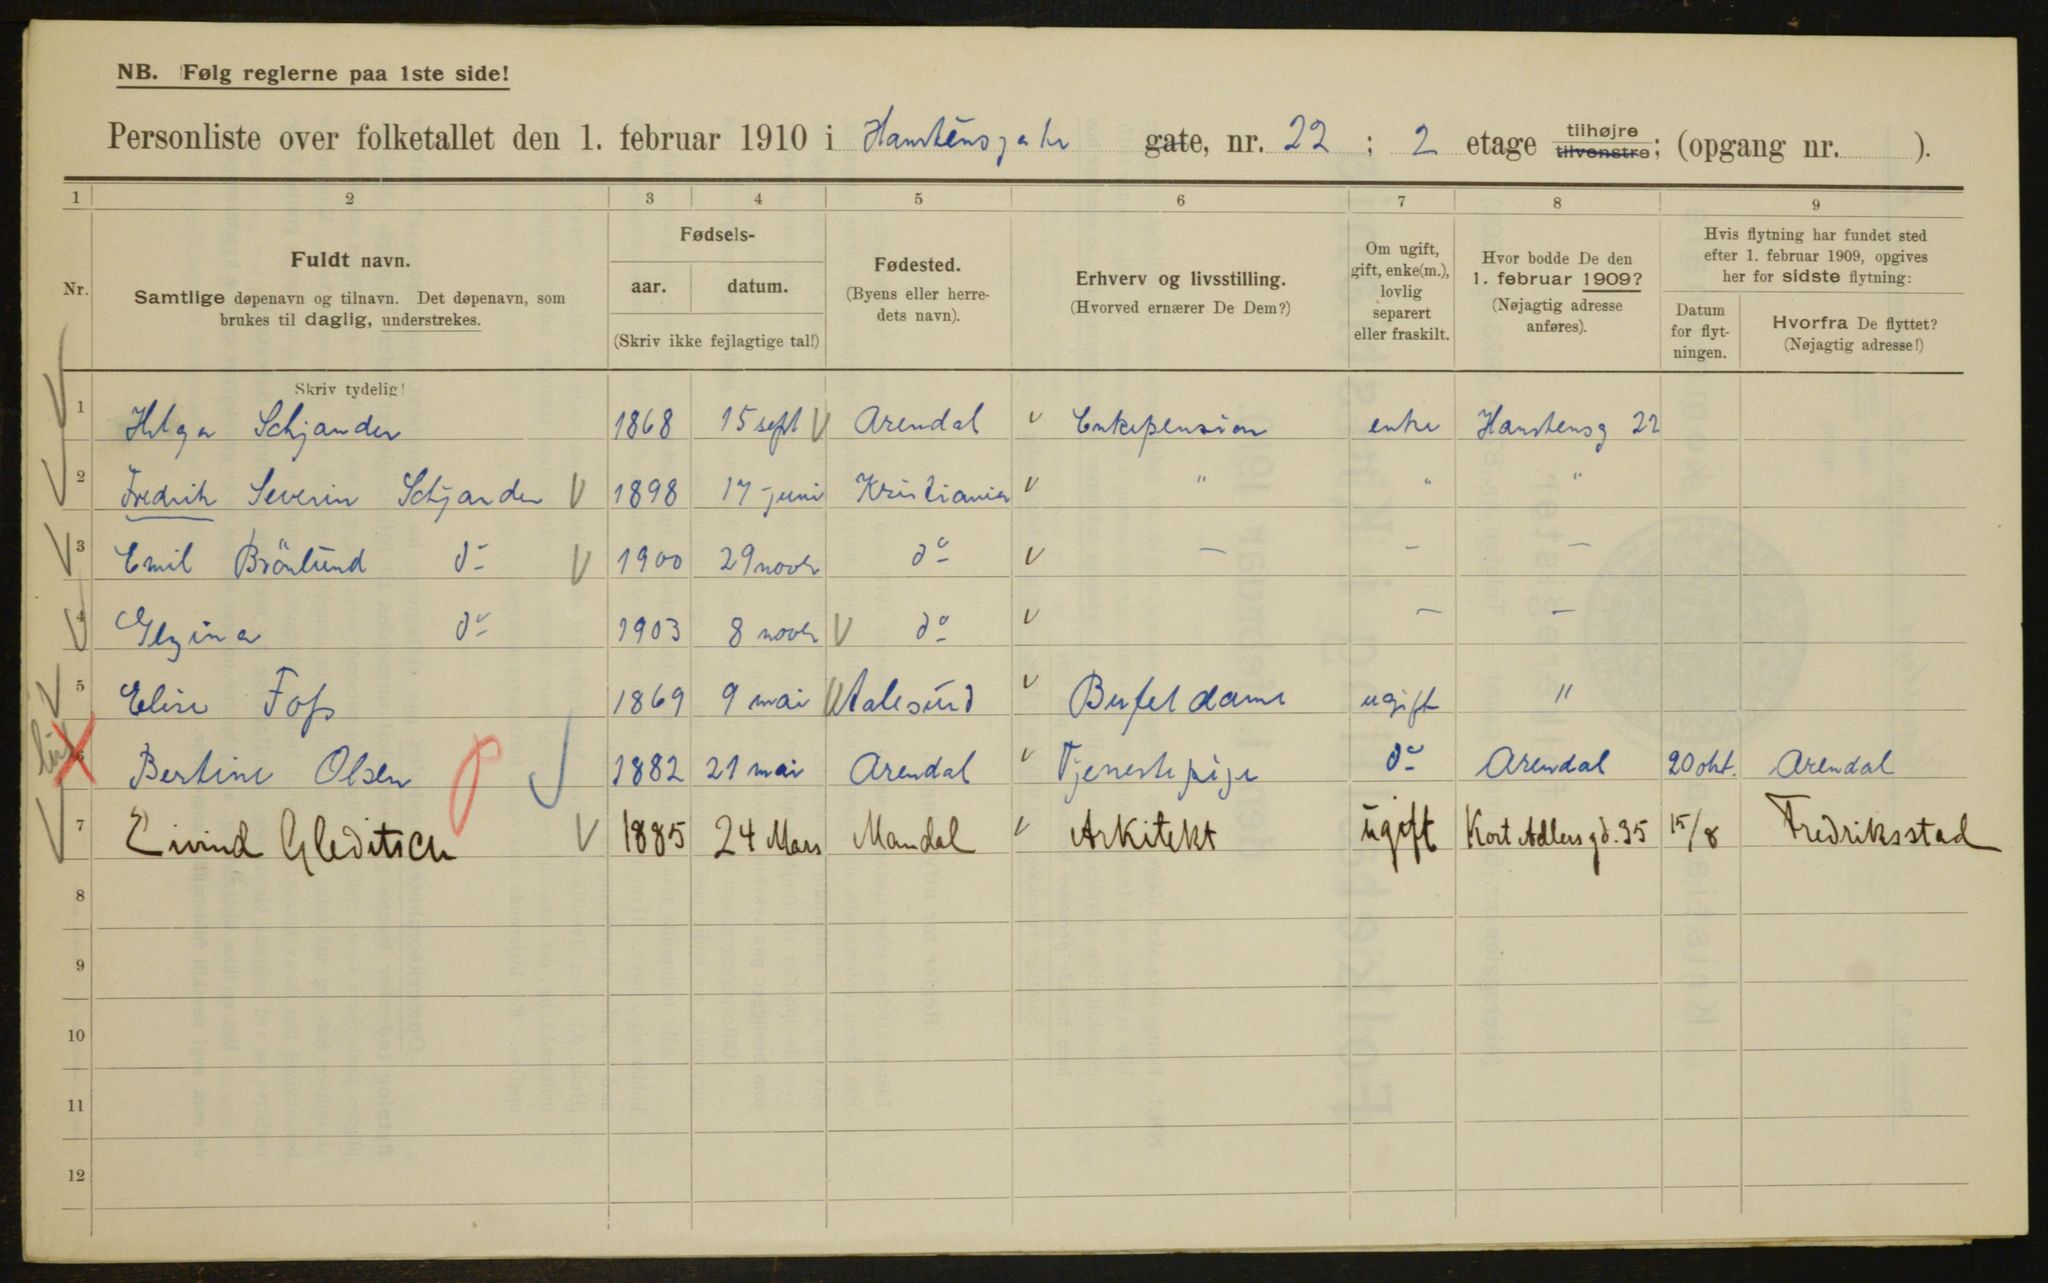 NB. Følg reglerne paa 1ste side!
Personliste over folketallet den 1. februar 1910 i Hansténsgate gate, nr. 22 ; 2 etage tilhøjre tilvenstre; (opgang nr. ).
1 2 3 4 5 6 7 8 9
Nr.
Fuldt navn.
Samtlige døpenavn og tilnavn. Det døpenavn, som
brukes til daglig, understrekes.
Fødsels-
aar. datum.
(Skriv ikke fejlagtige tal!)
Fødested.
(Byens eller herre-
dets navn).
Erhverv og livsstilling.
(Hvorved ernærer De Dem?)
Om ugift,
gift, enke(m.),
lovlig
separert
eller fraskilt.
Hvor bodde De den
1. februar 1909?
(Nøjagtig adresse
anføres).
Hvis flytning har fundet sted
efter 1. februar 1909, opgives
her for sidste flytning:
Datum
for flyt-
ningen.
Hvorfra De flyttet?
(Nøjagtig adresse!)
Skriv tydelig!
1 Helga Schjander 1868 15 sept Arendal Enkepension enke Hanstensg 22
2 Fredrik Severin Schjander 1898 17 juni Kristiania " " "
3 Emil Brönlund do 1900 29 novbr do — — —
4 do 1903 8 novbr do — —
5 Elise Foss 1869 9 mai Aalesund Bufetdame ugift "
6 Bertine Olsen 1882 21 mai Arendal Tjenestepige do Arendal 20 okt. Arendal
7 Eivind Gleditsch 1885 24 Mars Mandal Arkitekt ugift Kort Adlersgd. 35 15/8 Fredriksstad
8
9
10
11
12